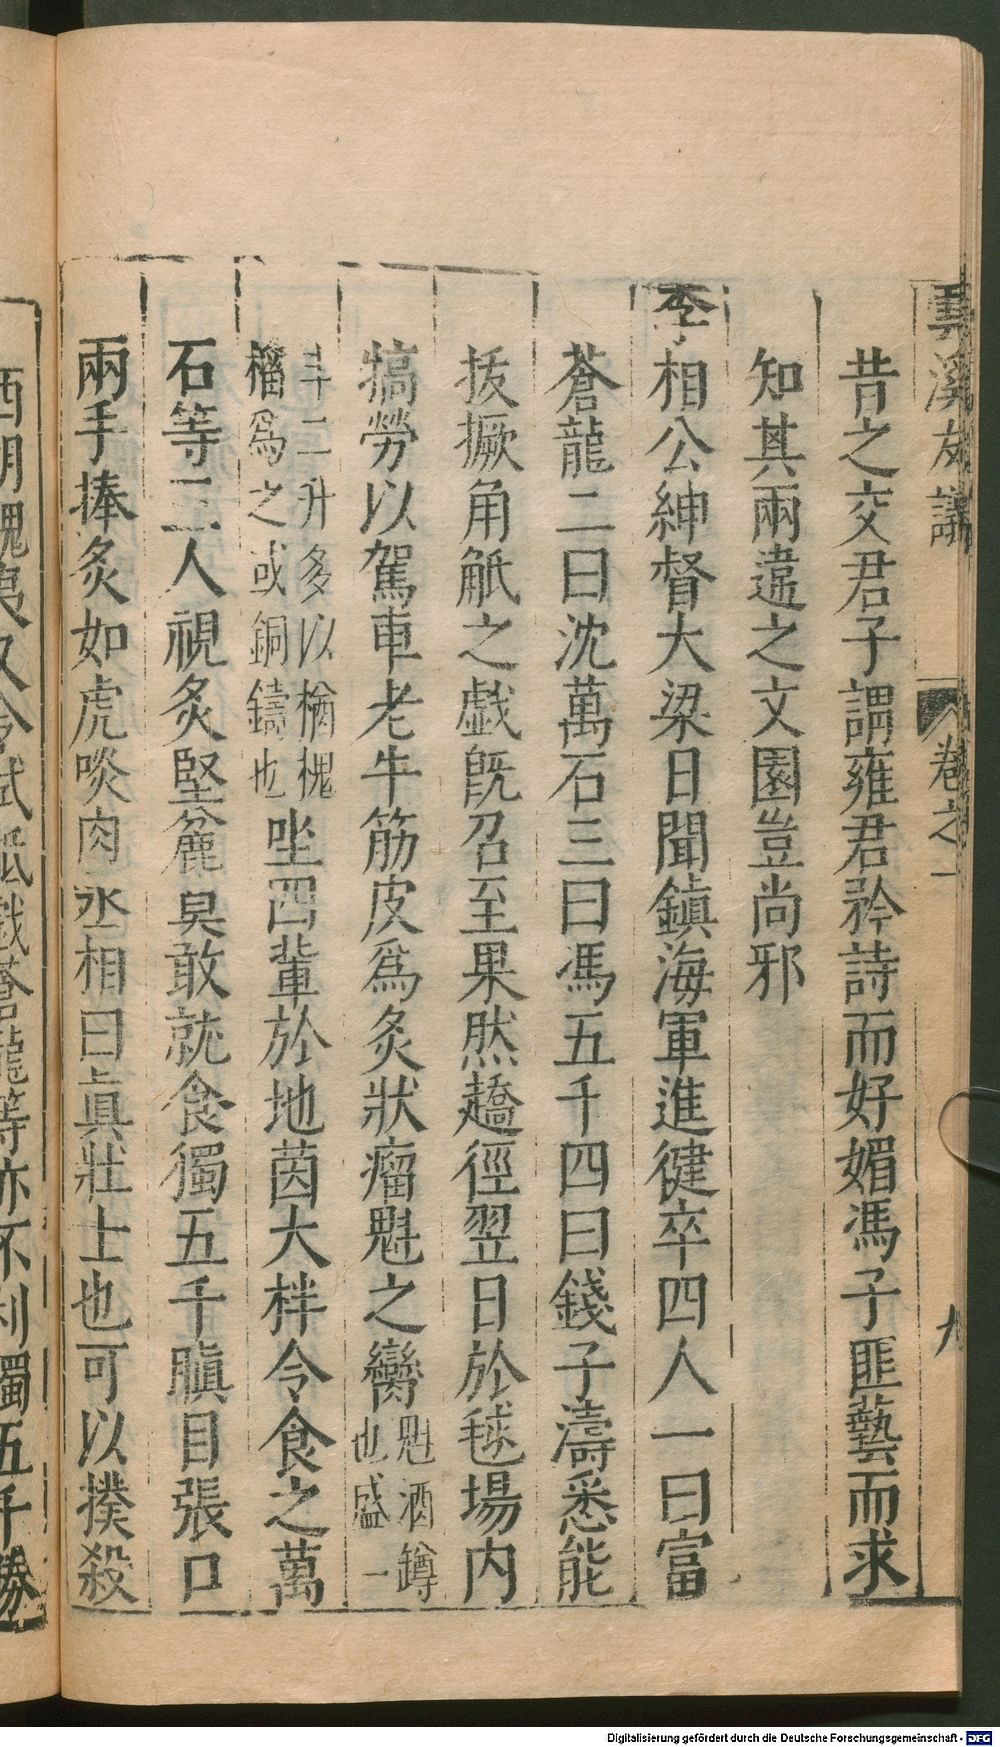 雲溪友議 卷之一 九
昔之交君子謂雍君矜詩而好媚馮子匪藝而求
知其兩違之文園豈尚邪
李相公紳督大梁日聞鎮海軍進健卒四人一曰富
蒼龍二曰沈萬石三曰馮五千四曰錢子濤悉能
拔撅角觝之戲旣召至果然趫徑翌日於毬場內
犒勞以駕車老牛筋皮爲炙狀瘤魁之臠魁酒鐏也盛一
斗二升多以楢槐榴爲之或銅鑄也坐四輩於地茵大柈令食之萬
石等三人視炙堅麄莫敢就食獨五千瞋目張口
兩手捧炙如虎啖肉丞相曰眞壯士也可以撲殺
西明愧夷又令試觝戲蒼龍等亦不利獨五千勝
Digitalisierung gefördert durch die Deutsche Forschungsgemeinschaft - DFG